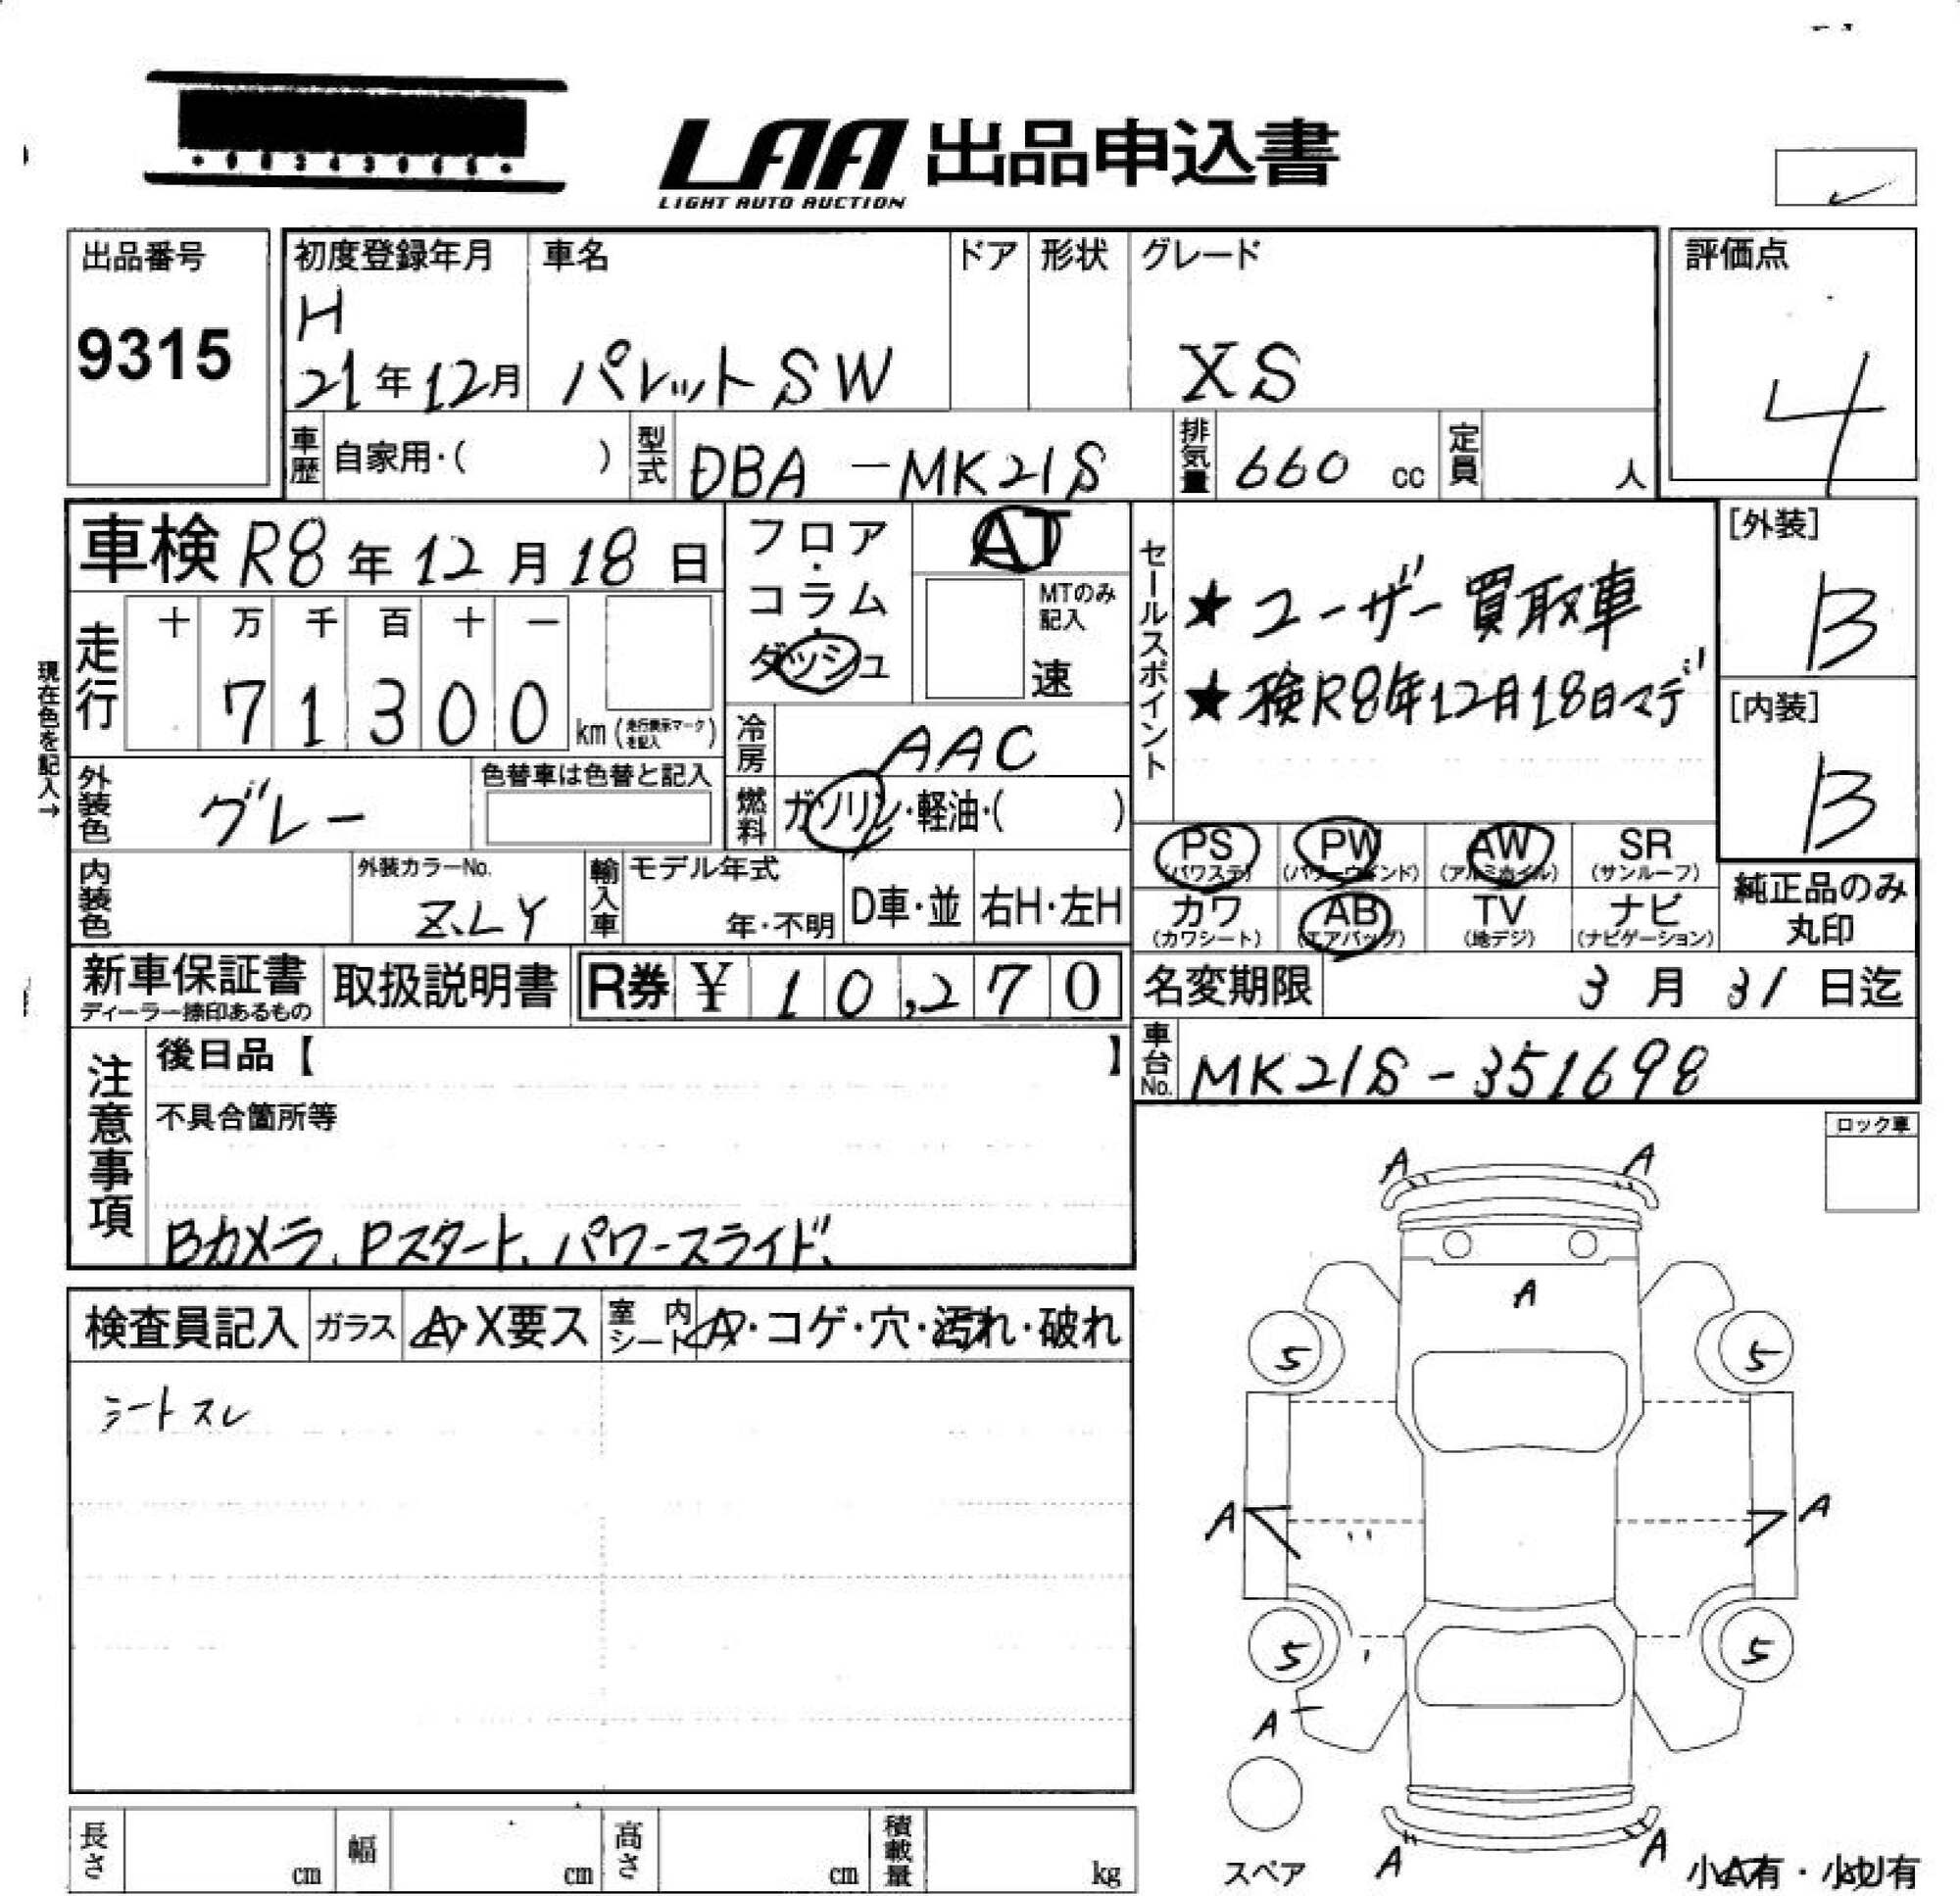 LAA 出品申込書
LIGHT AUTO AUCTION
出品番号
9315
初度登録年月
H
21年12月
車名
パレットSW
ドア
形状
グレード
XS
評価点
4
車歴 自家用・( )
型式 DBA-MK21S
排気量 660 cc
定員 人
車検 R8年12月18日
フロア・コラム・ダッシュ
AT
MTのみ記入
速
セールスポイント
★ユーザー買取車
★検R8年12月18日マデ
[外装]
B
[内装]
B
現在色を記入→
走行
十 万 千 百 十 一
7 1 3 0 0 km (走行表示マークを記入)
冷房 AAC
外装色 グレー
色替車は色替と記入
燃料 ガソリン・軽油・( )
内装色
外装カラーNo.
ZLY
輸入車
モデル年式
年・不明
D車・並
右H・左H
PS (パワステ)
PW (パワーウインド)
AW (アルミホイル)
SR (サンルーフ)
カワ (カワシート)
AB (エアバッグ)
TV (地デジ)
ナビ (ナビゲーション)
純正品のみ丸印
新車保証書
ディーラー捺印あるもの
取扱説明書
R券 ¥ 10,270
名変期限 3月31日迄
車台No. MK21S-351698
注意事項
後日品【 】
不具合箇所等
Bカメラ、Pスタート、パワースライド、
ロック車
検査員記入
ガラス A・X要ス
室内シート A・コゲ・穴・汚れ・破れ
シートスレ
A A
A
5 5
A A
5 5
A
A A
スペア
小A有・小U有
長さ cm
幅 cm
高さ cm
積載量 kg